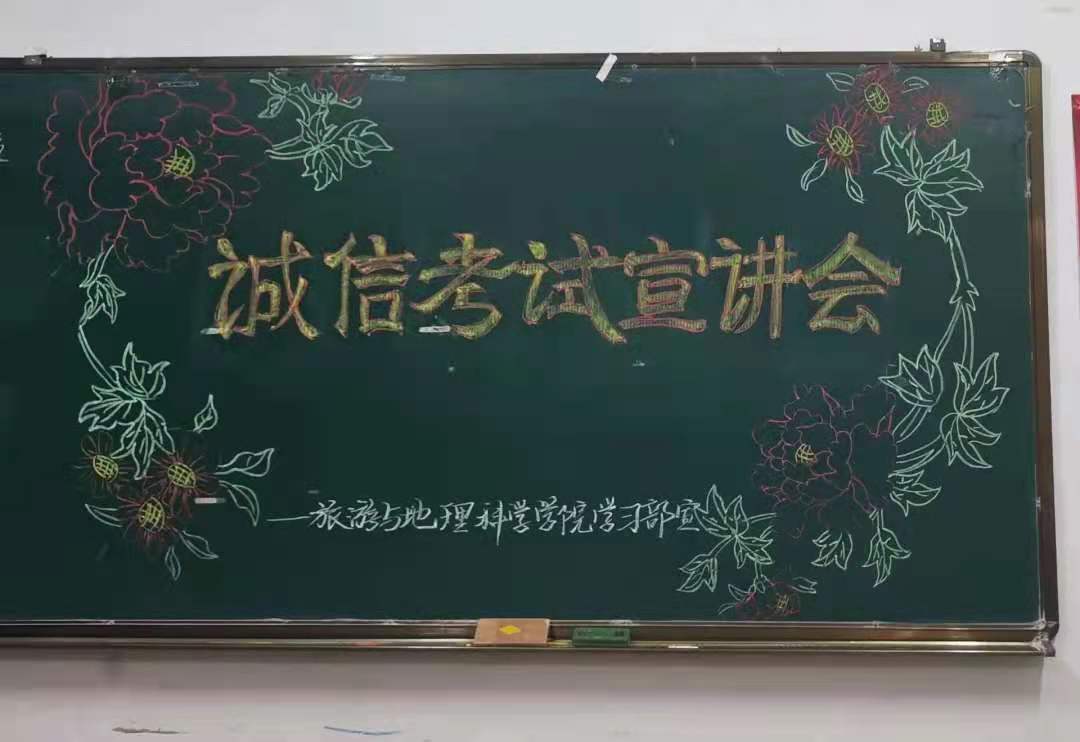 诚信考试宣讲会
—旅游与地理科学学院学习部宣